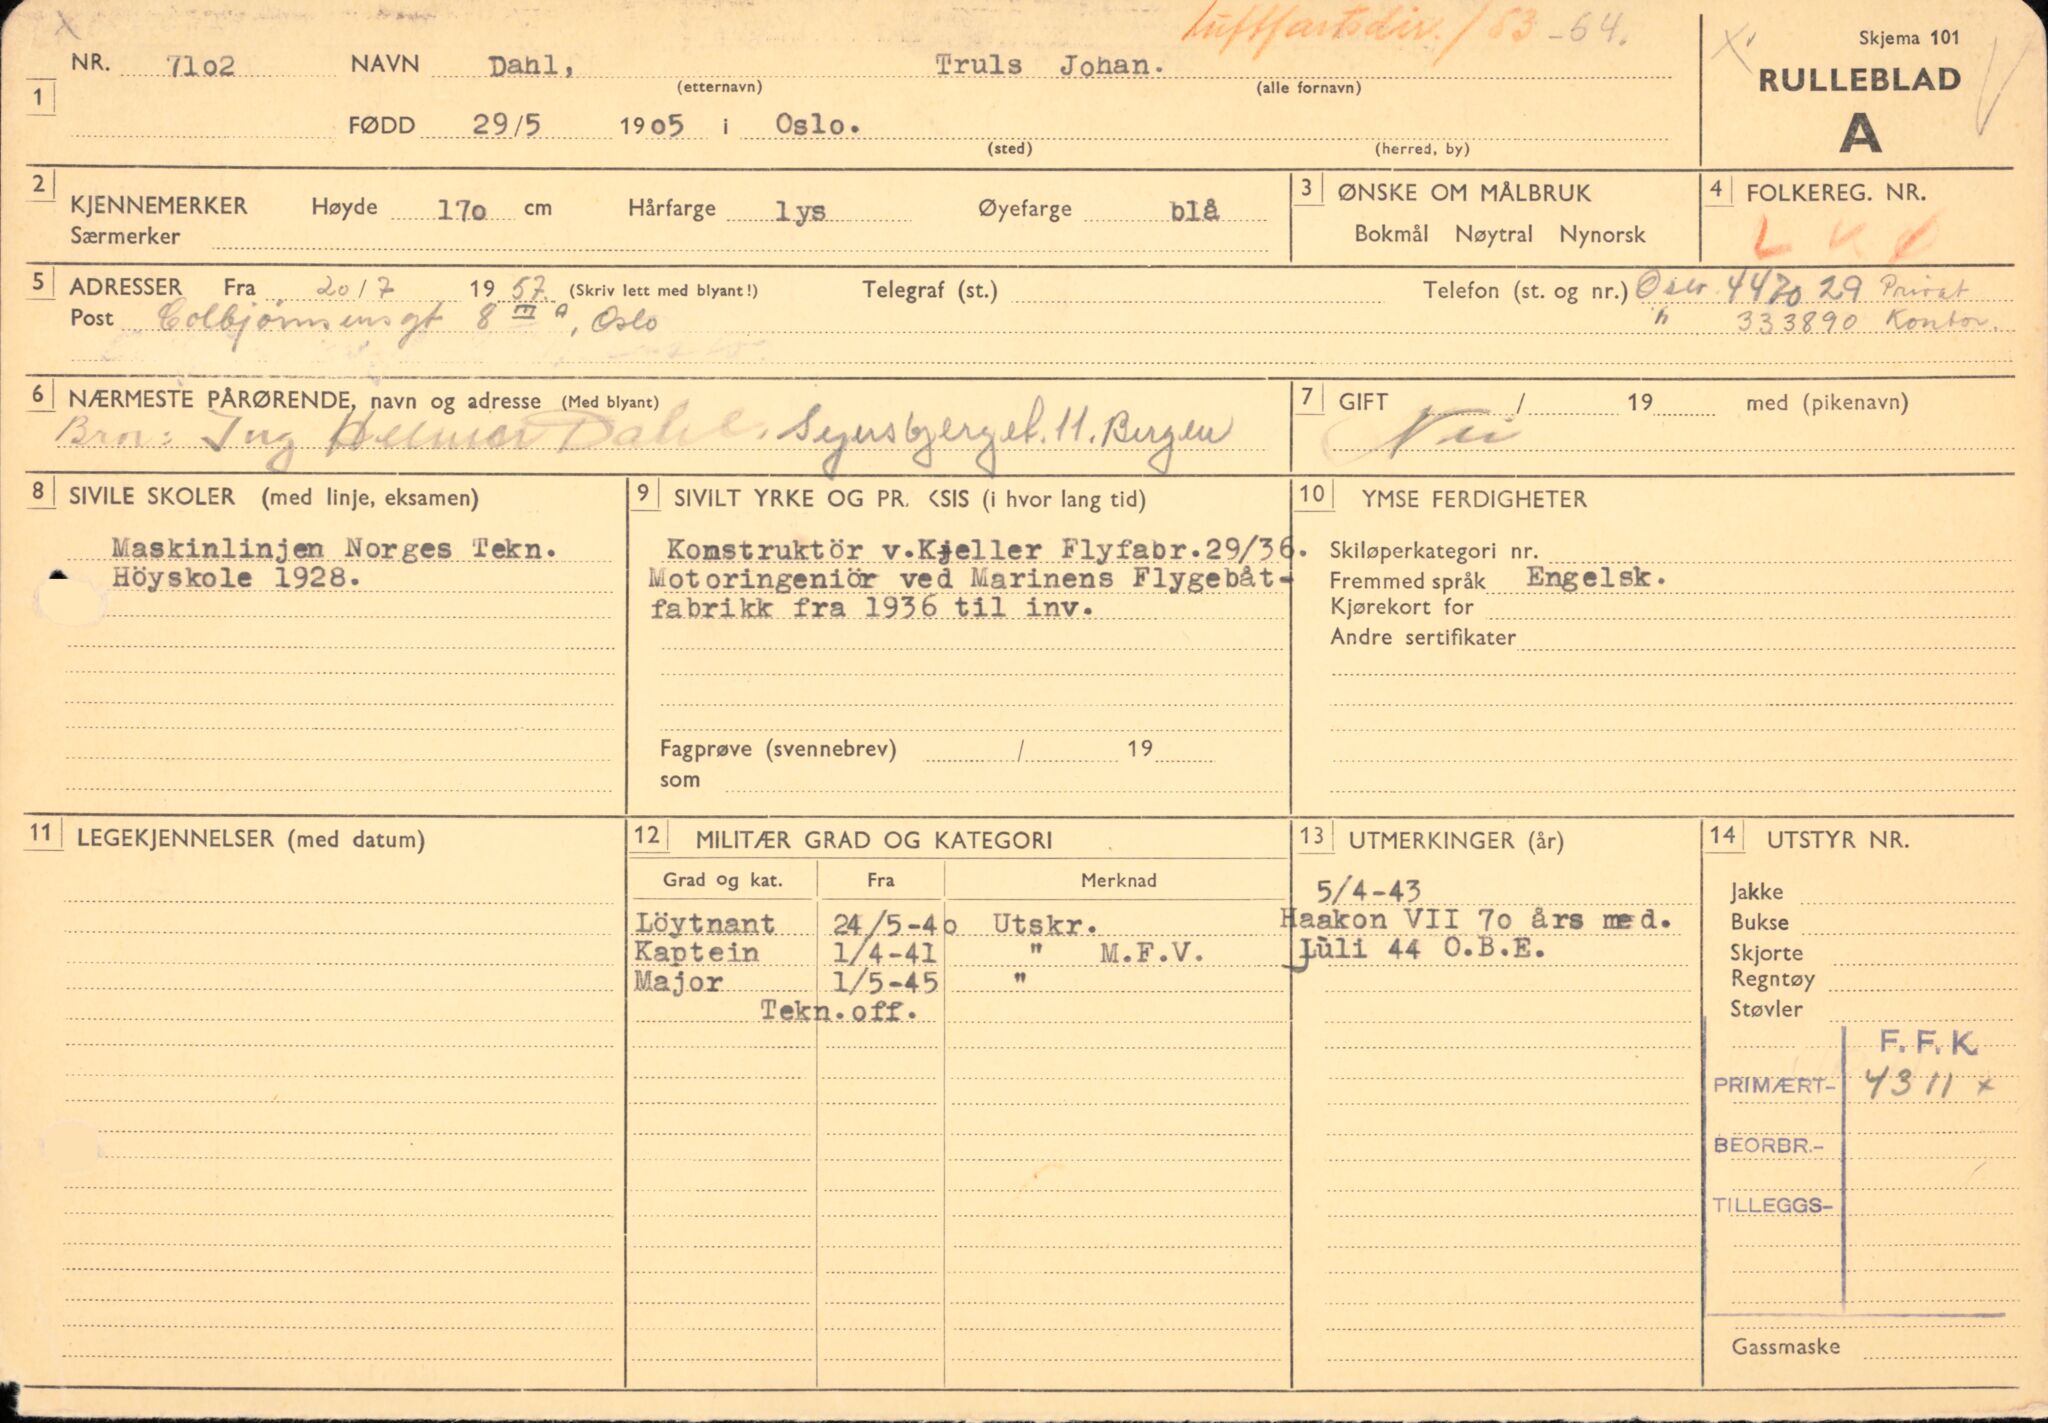 Luftfartsdir. / 63 - 64.
Skjema 101
RULLEBLAD
A
1
NR. 7102 NAVN Dahl, Truls Johan.
(etternavn) (alle fornavn)
FØDD 29/5 1905 i Oslo.
(sted) (herred, by)
2 KJENNEMERKER Høyde 170 cm Hårfarge lys Øyefarge blå
Særmerker
3 ØNSKE OM MÅLBRUK
Bokmål Nøytral Nynorsk
4 FOLKEREG. NR.
5 ADRESSER Fra 20/7 1957 (Skriv lett med blyant!) Telegraf (st.) Telefon (st. og nr.) Oslo 447029 Privat
Post Colbjørnsensgt 8 III A, Oslo " 333890 Kontor.
6 NÆRMESTE PÅRØRENDE, navn og adresse (Med blyant)
Bror: Ing Helmer Dahl, 11. Bergen
7 GIFT / 19 med (pikenavn)
Nei
8 SIVILE SKOLER (med linje, eksamen)
Maskinlinjen Norges Tekn.
Höyskole 1928.
9 SIVILT YRKE OG PR. KSIS (i hvor lang tid)
Konstruktör v.Kjeller Flyfabr.29/36.
Motoringeniör ved Marinens Flygebåt-
fabrikk fra 1936 til inv.
Fagprøve (svennebrev) / 19
som
10 YMSE FERDIGHETER
Skiløperkategori nr.
Fremmed språk Engelsk.
Kjørekort for
Andre sertifikater
11 LEGEKJENNELSER (med datum)
12 MILITÆR GRAD OG KATEGORI
Grad og kat. Fra Merknad
Löytnant 24/5-40 Utskr.
Kaptein 1/4-41 " M.F.V.
Major 1/5-45 "
Tekn.off.
13 UTMERKINGER (år)
5/4-43
Haakon VII 70 års med.
Juli 44 O.B.E.
14 UTSTYR NR.
Jakke
Bukse
Skjorte
Regntøy
Støvler
F. F. K.
PRIMÆRT- 4311 x
BEORBR.-
TILLEGGS-
Gassmaske